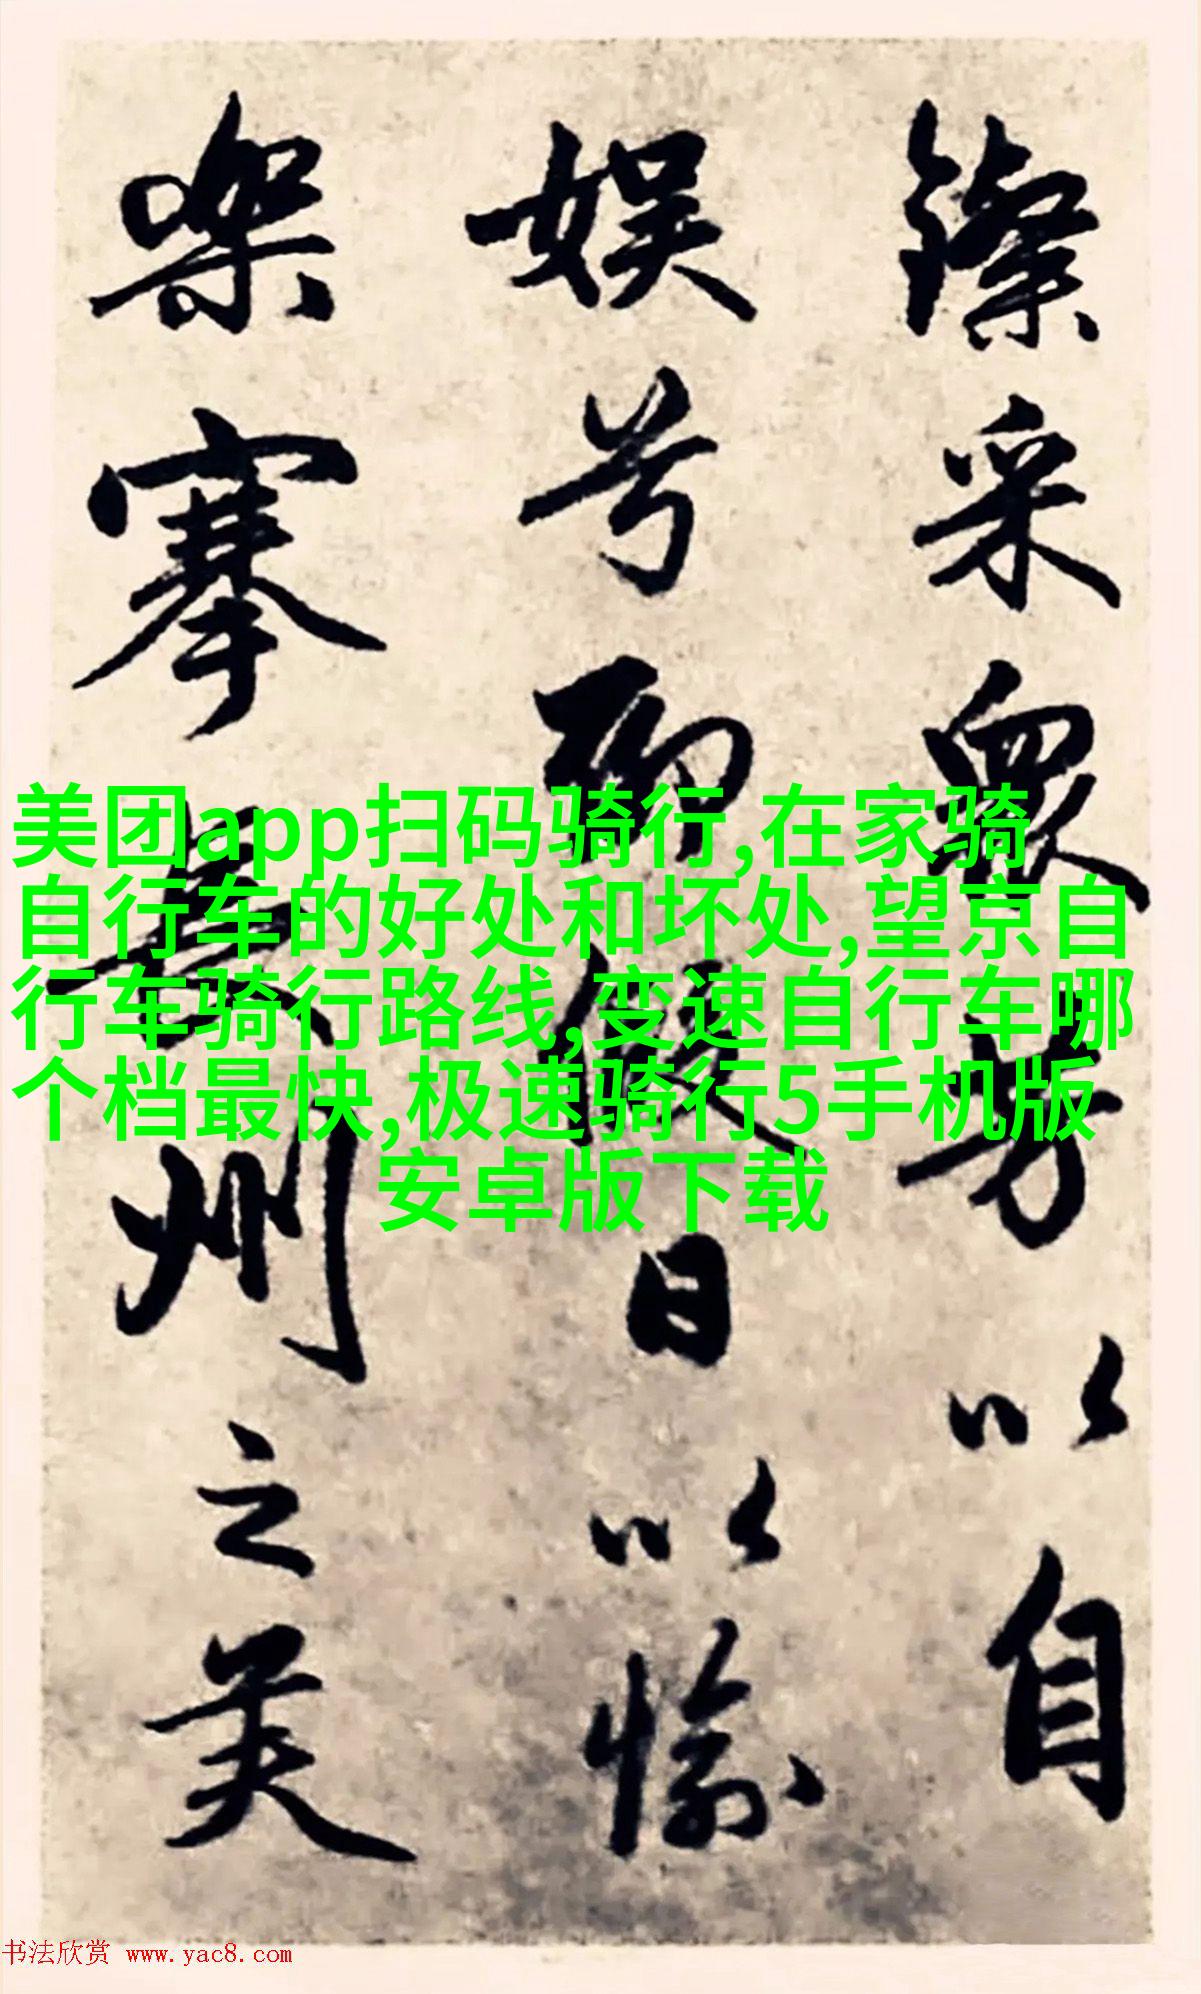 采眾芳以自
娛兮聊假日以愉
樂搴長州之芙
美团app扫码骑行,在家骑
自行车的好处和坏处,望京自
行车骑行路线,变速自行车哪
个档最快,极速骑行5手机版
安卓版下载
书法欣赏 www.yac8.com